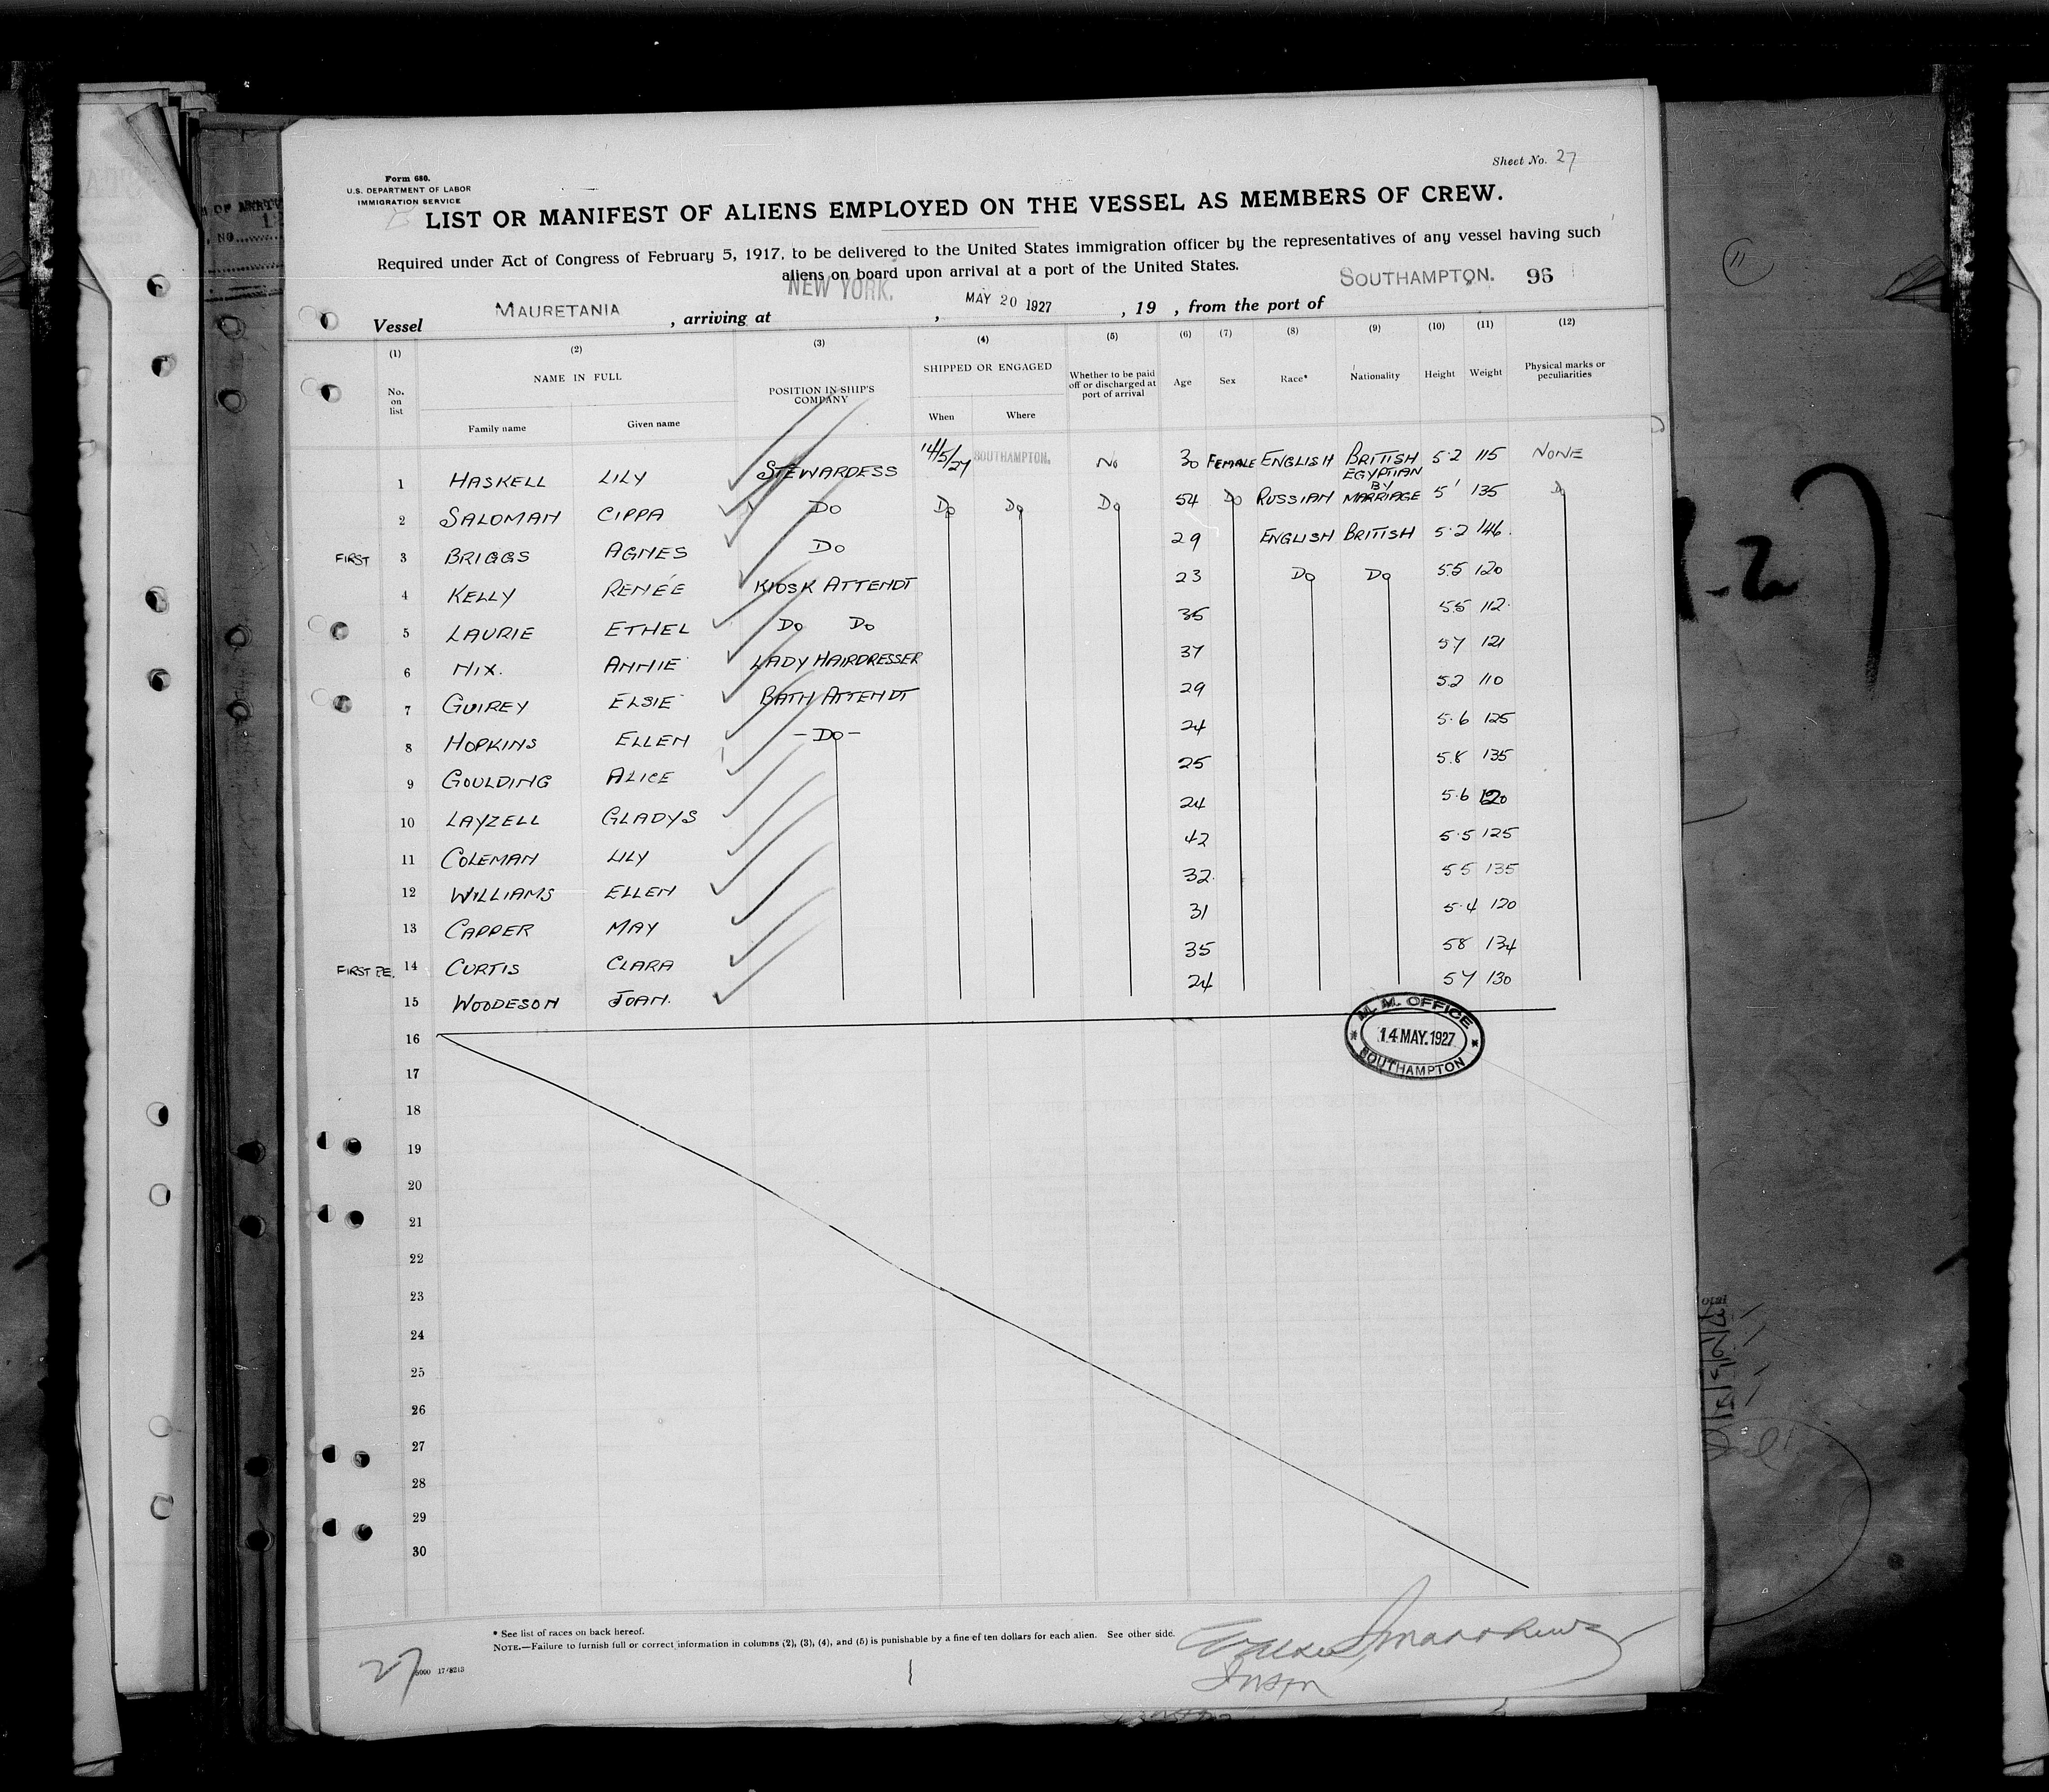 Sheet No. 27
Form 680.
U.S. DEPARTMENT OF LABOR
IMMIGRATION SERVICE
LIST OR MANIFEST OF ALIENS EMPLOYED ON THE VESSEL AS MEMBERS OF CREW.
Required under Act of Congress of February 5, 1917, to be delivered to the United States immigration officer by the representatives of any vessel having such
aliens on board upon arrival at a port of the United States.
Vessel MAURETANIA , arriving at NEW YORK. , MAY 20 1927 , 19 , from the port of SOUTHAMPTON. 96
(1) (2) (3) (4) (5) (6) (7) (8) (9) (10) (11) (12)
No. on list NAME IN FULL POSITION IN SHIP'S COMPANY SHIPPED OR ENGAGED Whether to be paid off or discharged at port of arrival Age Sex Race* Nationality Height Weight Physical marks or peculiarities
Family name Given name When Where
1 HASKELL LILY STEWARDESS 14/5/27 SOUTHAMPTON. NO 30 FEMALE ENGLISH BRITISH 5.2 115 NONE
2 SALOMAN CIPPA DO DO DO DO 54 DO RUSSIAN EGYPTIAN BY MARRIAGE 5' 135 DO
FIRST 3 BRIGGS AGNES DO 29 ENGLISH BRITISH 5.2 146.
4 KELLY RENÉE KIOSK ATTENDT 23 DO DO 5.5 120
5 LAURIE ETHEL DO DO 35 5.5 112.
6 NIX. ANNIE LADY HAIRDRESSER 37 5.7 121
7 GUIREY ELSIE BATH ATTENDT 29 5.2 110
8 HOPKINS ELLEN - DO - 24 5.6 125
9 GOULDING ALICE 25 5.8 135
10 LAYZELL GLADYS 24 5.6 120
11 COLEMAN LILY 42 5.5 125
12 WILLIAMS ELLEN 32. 5 5 135
13 CAPPER MAY 31 5.4 120
FIRST RE. 14 CURTIS CLARA 35 5 8 134
15 WOODESON JOAN. 24 5 7 130
M. M. OFFICE
14 MAY. 1927
SOUTHAMPTON
16
17
18
19
20
21
22
23
24
25
26
27
28
29
30
* See list of races on back hereof.
NOTE.—Failure to furnish full or correct information in columns (2), (3), (4), and (5) is punishable by a fine of ten dollars for each alien. See other side.
27
Insp